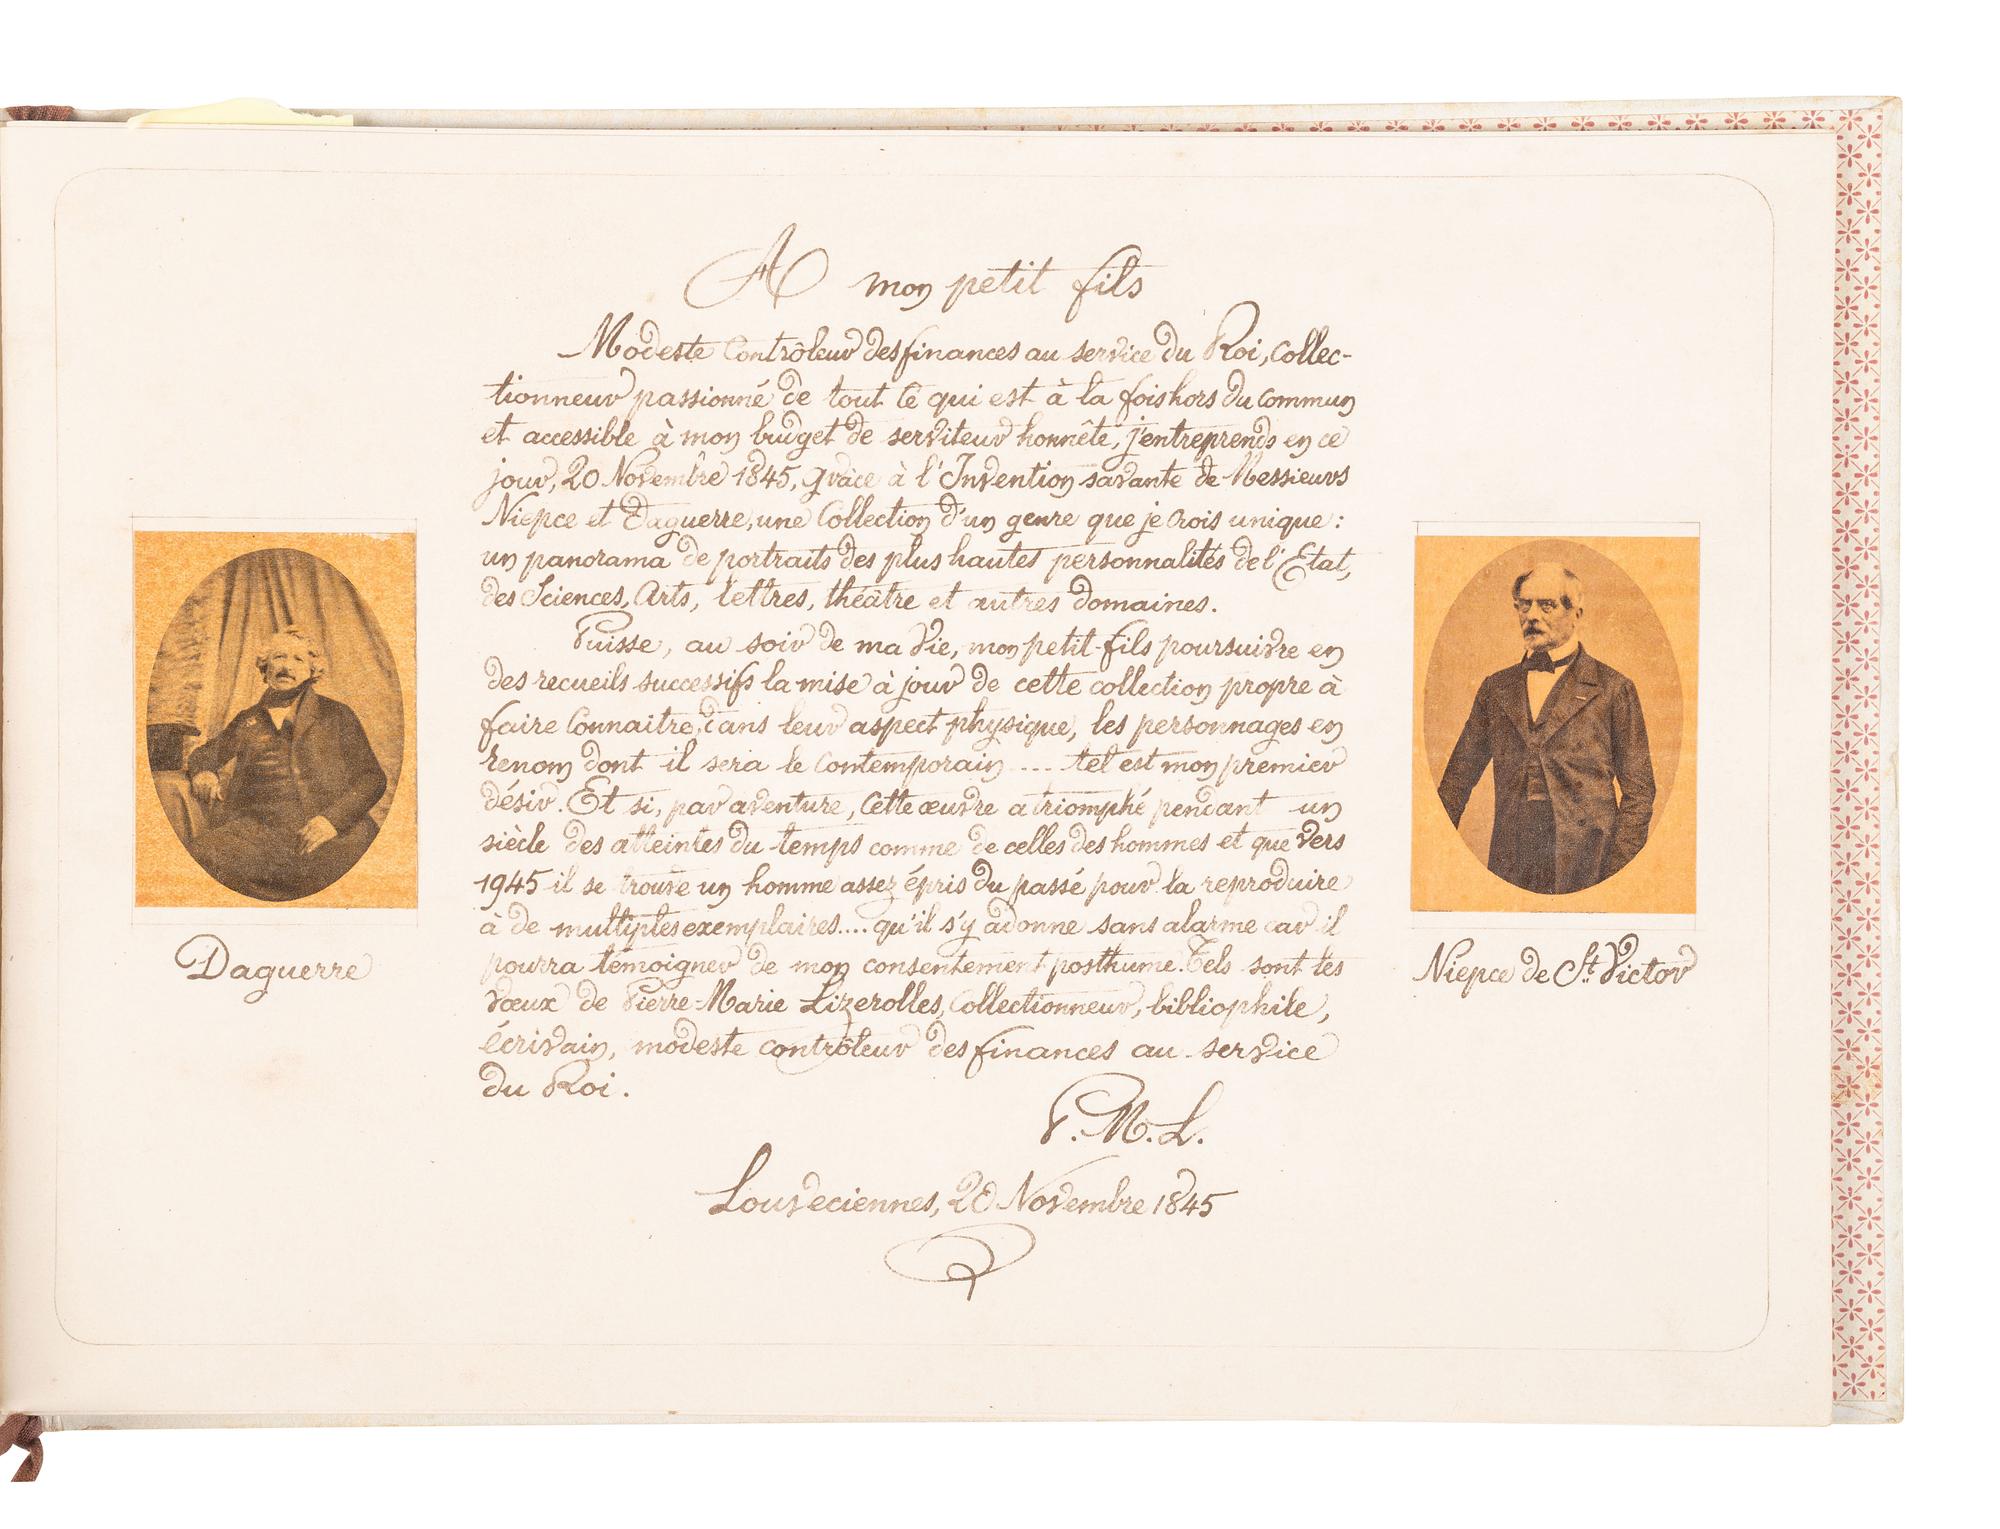 A mon petit fils
Modeste Contrôleur des finances au service du Roi, collec-
tionneur passionné de tout ce qui est à la fois hors du commun
et accessible à mon budget de serviteur honnête, j'entreprends en ce
jour, 20 Novembre 1845, grâce à l'Invention savante de Messieurs
Niepce et Daguerre, une Collection d'un genre que je crois unique :
un panorama de portraits des plus hautes personnalités de l'Etat,
des Sciences, Arts, lettres, théâtre et autres domaines.
Puisse, au soir de ma vie, mon petit-fils poursuivre en
des recueils successifs la mise à jour de cette collection propre à
faire Connaitre, dans leur aspect physique, les personnages en
renom dont il sera le Contemporain .... tel est mon premier
désir. Et si, par aventure, Cette œuvre a triomphé pendant un
siècle des atteintes du temps comme de celles des hommes et que vers
1945 il se trouve un homme assez épris du passé pour la reproduire
à de multiples exemplaires.... qu'il s'y adonne sans alarme car il
pourra témoigner de mon consentement posthume. Tels sont les
vœux de Pierre-Marie Lizerolles, Collectionneur, bibliophile,
écrivain, modeste contrôleur des finances au service
du Roi.
P. M. L.
Louveciennes, 20 Novembre 1845
Daguerre
Niepce de St. Victor